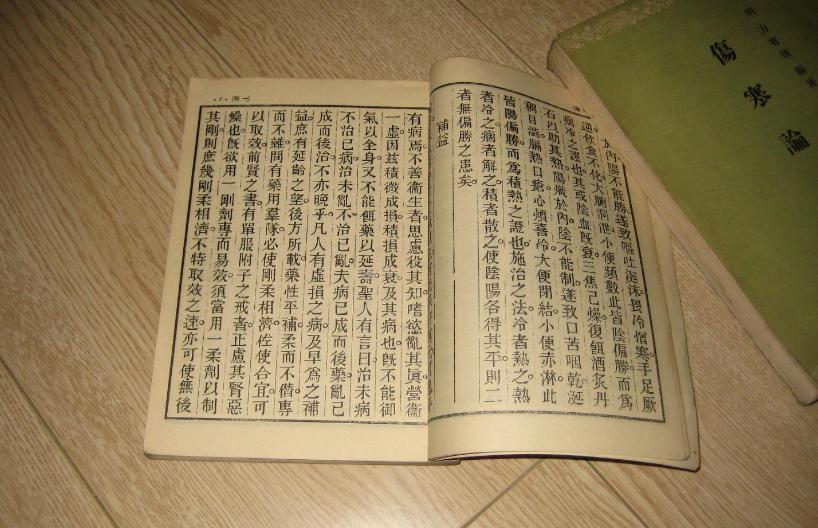 內陽不能勝遂致嘔吐涎沫畏冷憎寒手足厥
逆飲食不化大腑洞泄小便頻數此皆陰偏勝而爲
痼冷之證也其或陰血旣衰三焦已燥復餌酒炙丹
石以助其熱陽熾於內陰不能制遂致口苦咽乾涎
稠目澁膈熱口瘡心煩喜冷大便閉結小便赤淋此
皆陽偏勝而爲積熱之證也施治之法冷者熱之熱
者冷之痼者解之積者散之使陰陽各得其平則二
者無偏勝之患矣。
補益
有病焉不善衞生者思慮役其知嗜慾亂其眞營衞
一虛因兹積微成損積損成衰及其病也旣不能御
氣以全身又不能餌藥以延壽聖人有言曰治未病
不治已病治未亂不治已亂夫病已成而後藥亂已
成而後治不亦晚乎凡人有虛損之病及早爲之補
益庶有延齡之望後方所載藥性平補柔而不僭專
而不雜間有藥用羣隊必使剛柔相濟佐使合宜可
以取效前賢之書有單服附子之戒者正慮其腎惡
燥也旣欲用一剛劑專而易效須當用一柔劑以制
其剛則庶幾剛柔相濟不特取效之速亦可使無後
傷寒論
明 方有執 編著